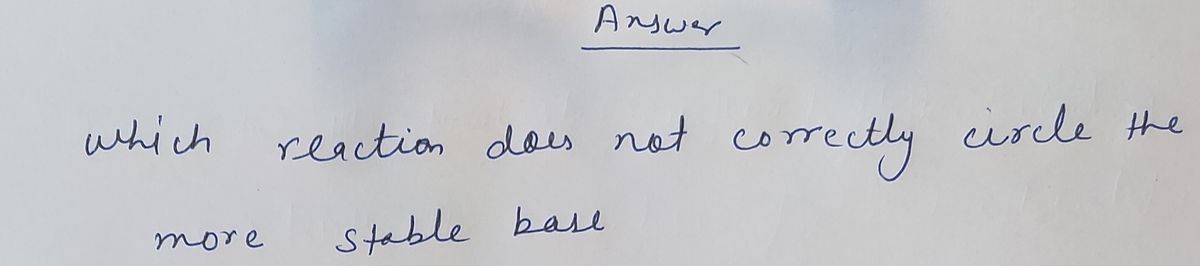 Answer
which reaction does not correctly circle the
more stable base